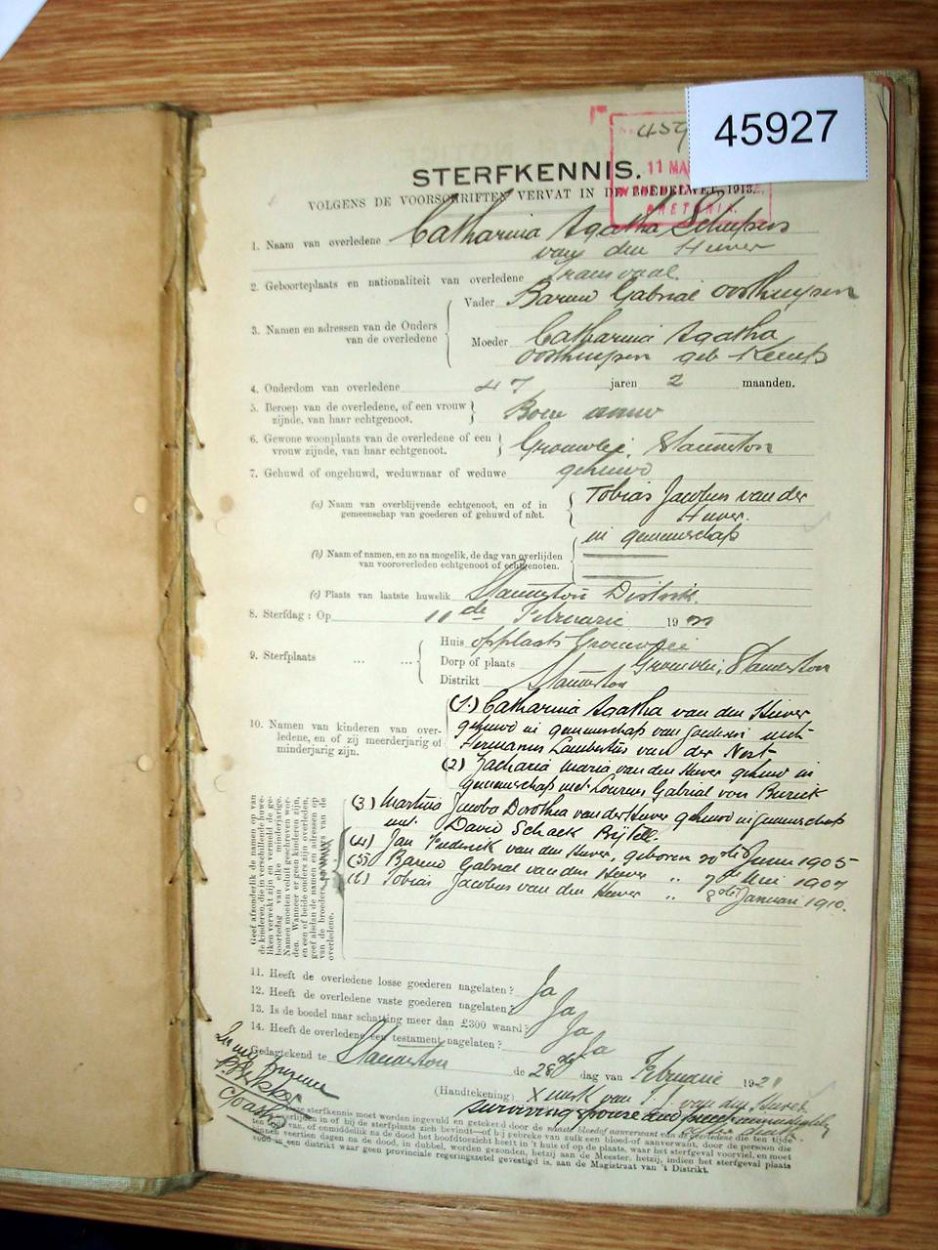 45927
459
11 MA
PRETORIA.
STERFKENNIS.
VOLGENS DE VOORSCHRIFTEN VERVAT IN DE BOEDELWET, 1913.
1. Naam van overledene Catharina Agatha
van den Heever
2. Geboorteplaats en nationaliteit van overledene Transvaal
3. Namen en adressen van de Ouders van de overledene
Vader Barend Gabriel Oosthuysen
Moeder Catharina Agatha
Oosthuysen geb
4. Ouderdom van overledene 47 jaren 2 maanden.
5. Beroep van de overledene, of een vrouw
zijnde, van haar echtgenoot.
Boere
6. Gewone woonplaats van de overledene of een
vrouw zijnde, van haar echtgenoot.
Grootvlei, Standerton
7. Gehuwd of ongehuwd, weduwnaar of weduwe gehuwd
(a) Naam van overblijvende echtgenoot, en of in
gemeenschap van goederen of gehuwd of niet.
Tobias Jacobus van der
Heever.
in gemeenschap
(b) Naam of namen, en zo na mogelik, de dag van overlijden
van vooroverleden echtgenoot of echtgenoten.
(c) Plaats van laatste huwelik Standerton District
8. Sterfdag : Op 11de Februarie 19
9. Sterfplaats ... ...
Huis opplaats Grootvlei
Dorp of plaats Grootvlei, Standerton
Distrikt Standerton
10. Namen van kinderen van over-
ledene, en of zij meerderjarig of
minderjarig zijn.
(1.) Catharina Agatha van den Heever
gehuwd in gemeenschap van goederen met
Hermanus Lambertus van der
(2) Zacharia Maria van den Heever gehuwd in
gemeenschap met Lourens Gabriel van
(3) Martina Jacoba Dorothea van der Heever gehuwd in gemeenschap
met David Schalk
(4) Jan Frederik van den Heever, geboren Junie 1905
(5) Barend Gabriel van den Heever " 7de Mei 1907
(6) Tobias Jacobus van den Heever " 8ste Januari 1910.
Geef afzonderlik de namen op van
de kinderen, die in verschillende huwe-
liken verwekt zijn en vermeld de ge-
boortedag van elke minderjarige.
Namen moeten voluit geschreven wor-
den. Wanneer er geen kinderen zijn,
en een of beide ouders zijn overleden,
geef alsdan de namen en adressen op
van de broeders van de
overledene.
11. Heeft de overledene losse goederen nagelaten? Ja
12. Heeft de overledene vaste goederen nagelaten? Ja
13. Is de boedel naar schatting meer dan £300 waard? Ja
14. Heeft de overledene een testament nagelaten? Ja
Gedagtekend te Standerton de 28 dag van Februarie 1921
In mij
(Handtekening) X merk van T. J. van den Heever
surviving spouse and
Deze sterfkennis moet worden ingevuld en geteekend door de naaste bloed of aanverwant van de overledene die ten tijde
van overlijden in of bij de sterfplaats zich bevindt—of b ij gebreke van zulk een bloed-of aanverwant, door de persoon die
ten tijde van, of onmiddellik na de dood het hoofdtoezicht heeft in 't huis of op de plaats, waar het sterfgeval voorviel, en moet
binnen veertien dagen na de dood, in dubbel, worden gezonden, hetzij aan de Meester, hetzij, indien het sterfgeval plaats
vond in een distrikt waar geen provinciale regeringszetel gevestigd is, aan de Magistraat van 't Distrikt.